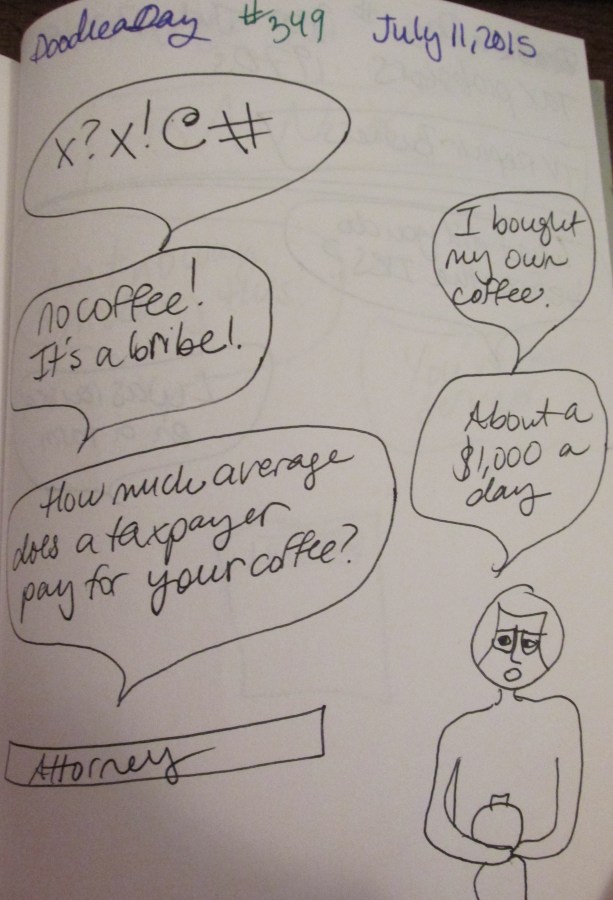 DoodleaDay #349 July 11, 2015
x?x!@#
no coffee!
It's a bribe!
How much average
does a taxpayer
pay for your coffee?
Attorney
I bought
my own
coffee.
About a
$1,000 a
day